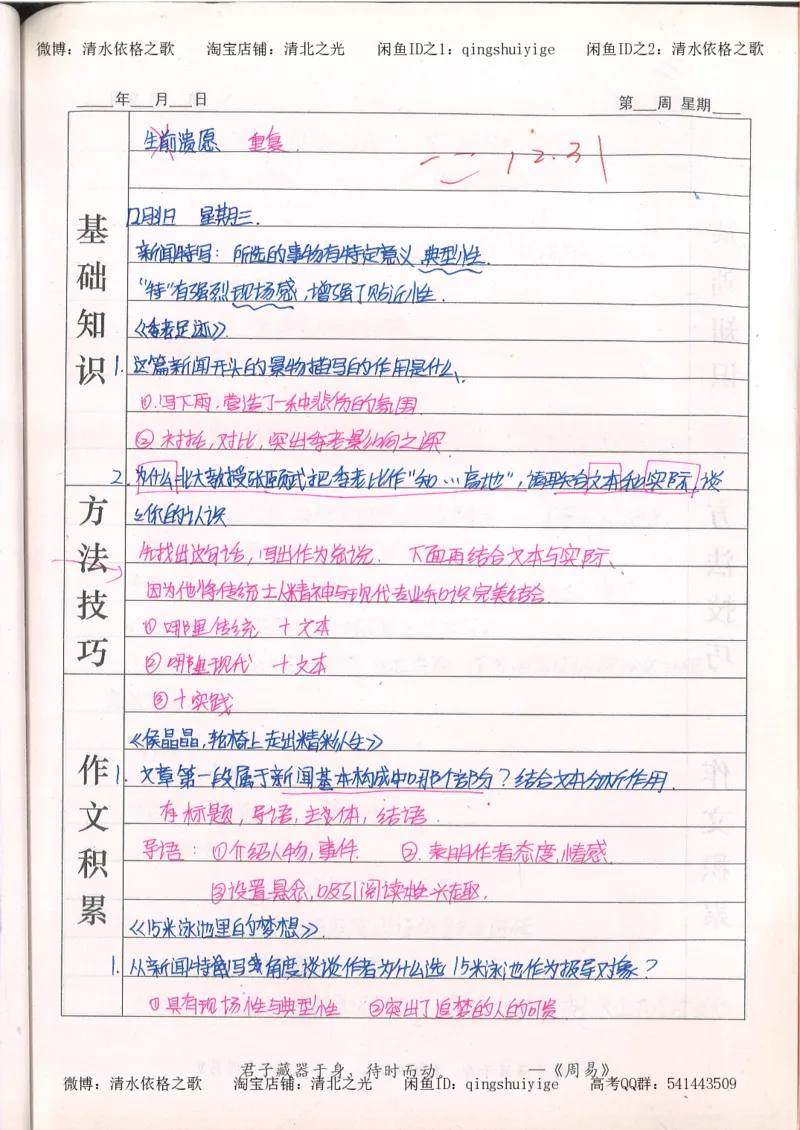 微博：清水依格之歌 淘宝店铺：清北之光 闲鱼ID之1：qingshuiyige 闲鱼ID之2：清水依格之歌
年 月 日 第 周 星期
生前遗愿 重复.
12.31
12月31日 星期三.
新闻特写：所选的事物有特定意义 典型性.
"特"有强烈现场感,增强了贴近性.
《季老足迹》.
1.这篇新闻开头的景物描写的作用是什么.
①.写下雨.营造了一种悲伤的氛围
②衬托,对比,突出季老影响之深
2.为什么北大教授张颐武把季老比作"知…高地",请联合文本和实际,谈
谈你的认识
先找出这句话,写出作为总说. 下面再结合文本与实际、
因为他将传统士人精神与现代专业知识完美结合
①哪里传统 +文本
②哪里现代 +文本
③+实践
《侯晶晶,轮椅上走出精彩人生》
1.文章第一段属于新闻基本构成中哪个部分？结合文本分析作用.
有标题,导语,主体,结语.
导语：①介绍人物,事件. ②.表明作者态度,情感.
③设置悬念,吸引阅读性兴趣.
《15米泳池里的梦想》.
1.从新闻特写角度谈谈作者为什么选15米泳池作为报导对象？
①具有现场性与典型性 ②突出了追梦的人的可贵
基础知识
方法技巧
作文积累
君子藏器于身，待时而动。 ——《周易》
微博：清水依格之歌 淘宝店铺：清北之光 闲鱼ID：qingshuiyige 高考QQ群：541443509